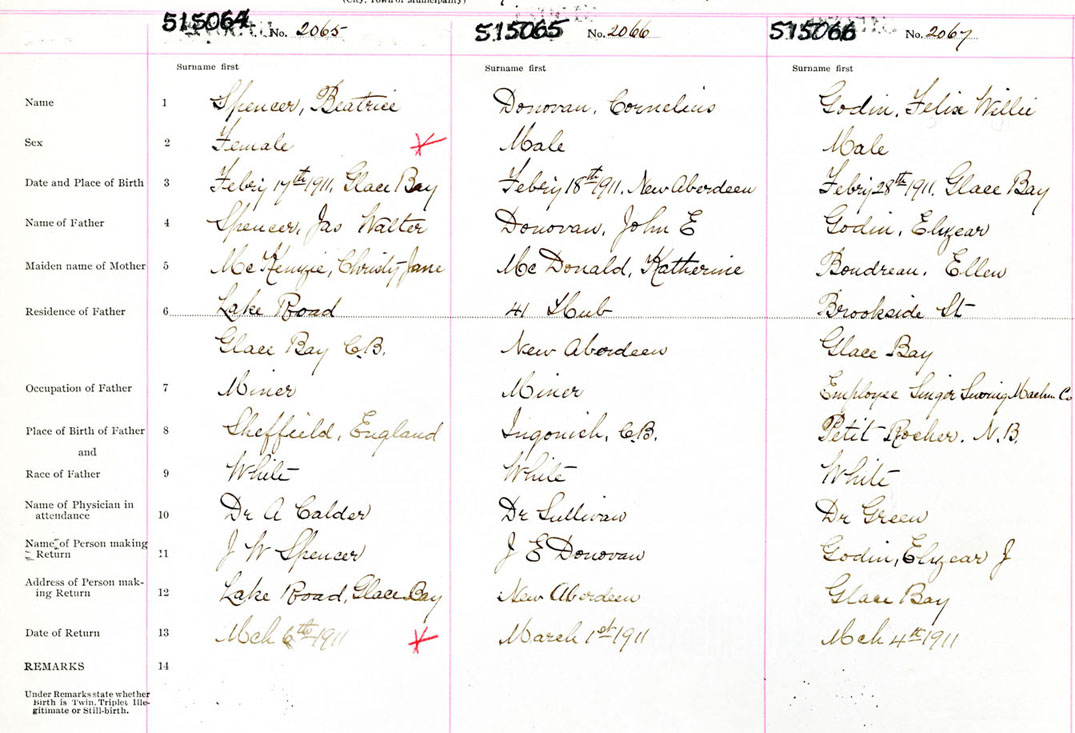 (City, Town or Municipality)
515064 No. 2065 515065 No. 2066 515066 No. 2067
Surname first Surname first Surname first
Name 1 Spencer, Beatrice Donovan, Cornelius Godin, Felix Willie
Sex 2 Female Male Male
Date and Place of Birth 3 Febry 17th 1911, Glace Bay Febry 18th 1911, New Aberdeen Febry 28th 1911, Glace Bay
Name of Father 4 Spencer, Jas Walter Donovan, John E Godin, Elyzear
Maiden name of Mother 5 McKenzie, Christy Jane McDonald, Katherine Boudreau, Ellen
Residence of Father 6 Lake Road 41 Hub Brookside St
Glace Bay C.B. New Aberdeen Glace Bay
Occupation of Father 7 Miner Miner Employee Singer Sewing Machn Co
Place of Birth of Father 8 Sheffield, England Ingonish, C.B. Petit Rocher, N.B.
and
Race of Father 9 White White White
Name of Physician in
attendance 10 Dr A Calder Dr Sullivan Dr Green
Name of Person making
Return 11 J W Spencer J E Donovan Godin, Elyzear J
Address of Person mak-
ing Return 12 Lake Road, Glace Bay New Aberdeen Glace Bay
Date of Return 13 Mch 6th 1911 March 1st 1911 Mch 4th 1911
REMARKS 14
Under Remarks state whether
Birth is Twin, Triplet Ille-
gitimate or Still-birth.